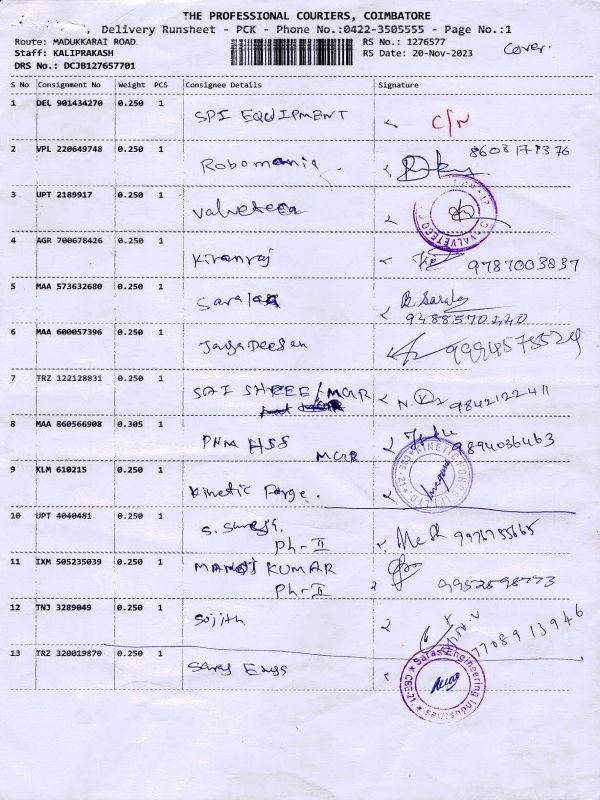 THE PROFESSIONAL COURIERS, COIMBATORE
Delivery Runsheet - PCK - Phone No.:0422-3505555 - Page No.:1
Route: MADUKKARAI ROAD RS No.: 1276577 Cover.
Staff: KALIPRAKASH RS Date: 20-Nov-2023
DRS No.: DCJB127657701
S No Consignment No Weight PCS Consignee Details Signature
1 DEL 901434270 0.250 1 SPI EQUIPMENT C/N
2 VPL 220649748 0.250 1 Robomania.
3 UPT 2189917 0.250 1 Valveteca
4 AGR 700678426 0.250 1 Kiranraj 9787003837
5 MAA 573632680 0.250 1 Sarala B. Sarala
9488570440
6 MAA 600057396 0.250 1 9994575524
7 TRZ 122128831 0.250 1 SAI SHREE / MCAR 9842122411
8 MAA 860566908 0.305 1 PNM HSS MCAR 9894036463
9 KLM 610215 0.250 1 Kinetic Forge.
10 UPT 4040481 0.250 1 S. Suresh.
Ph-II
11 IXM 505235039 0.250 1 MANOJ KUMAR
Ph-II 9952598773
12 TNJ 3289049 0.250 1 Sojith 7708913946
13 TRZ 320019870 0.250 1 Saras Engg
Saras Engineering Industries
CBE-21